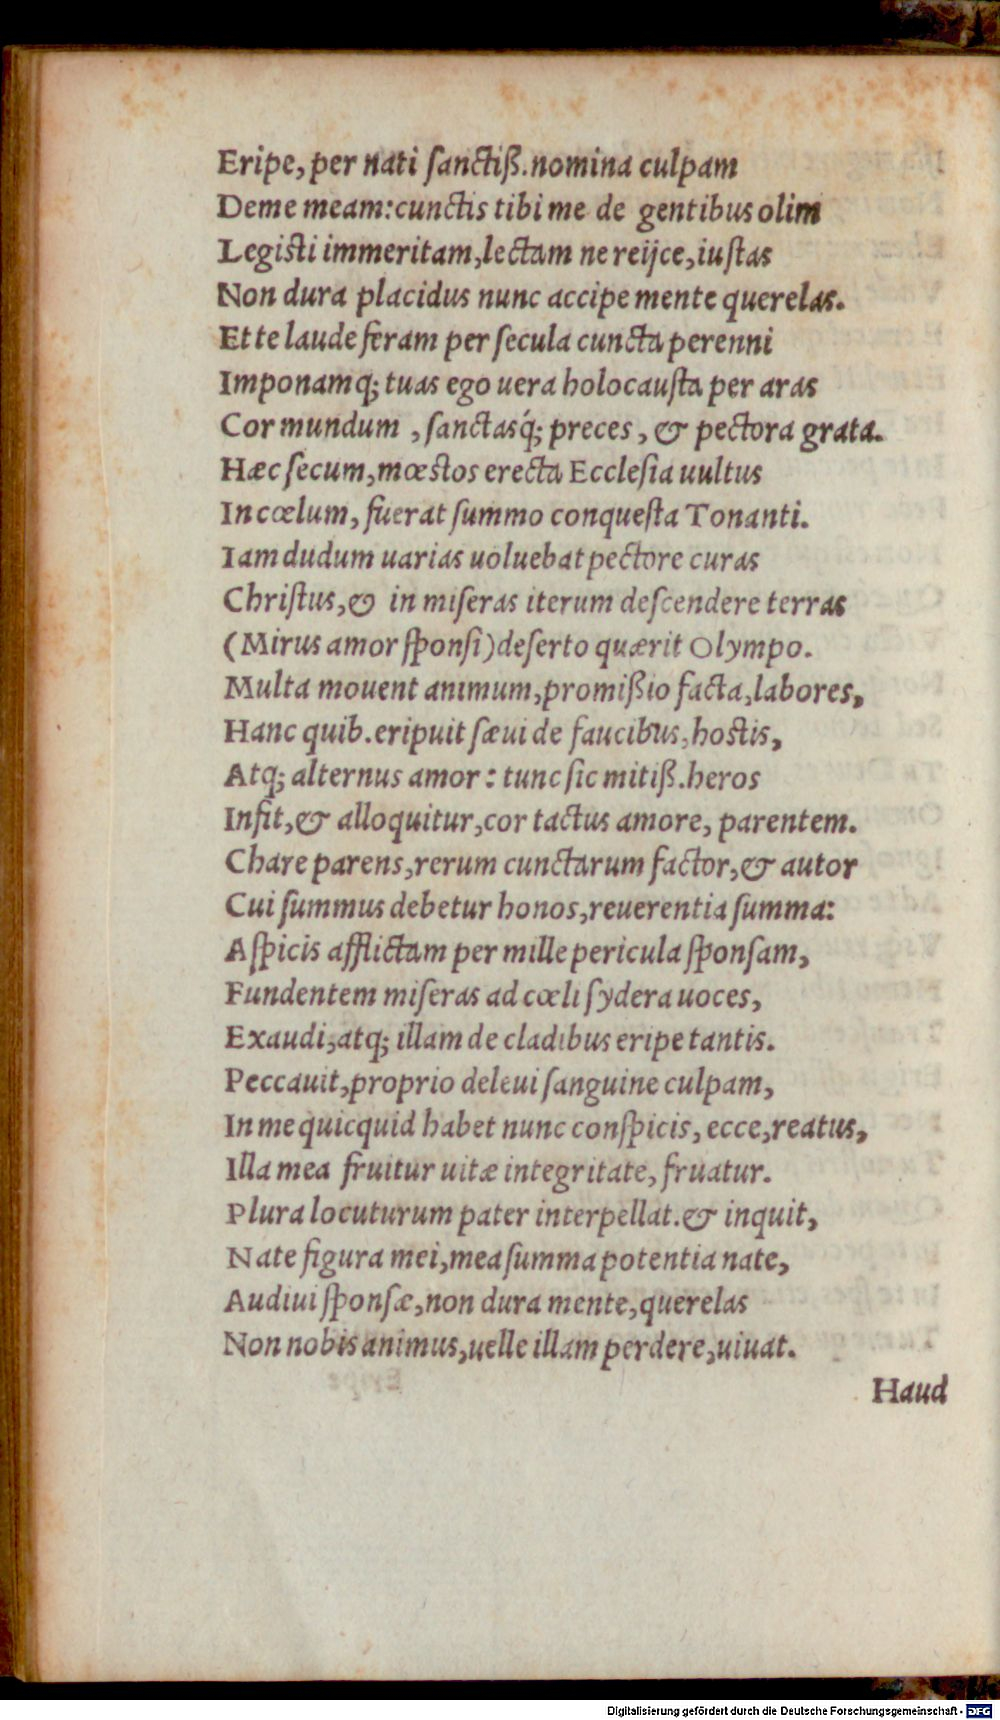 Eripe, per nati ſanctiß. nomina culpam
Deme meam: cunctis tibi me de gentibus olim
Legisti immeritam, lectam ne reijce, iuſtas
Non dura placidus nunc accipe mente querelas.
Et te laude feram per ſecula cuncta perenni
Imponamq; tuas ego uera holocauſta per aras
Cor mundum, ſanctasq́; preces, & pectora grata.
Hæc ſecum, mœstos erecta Eccleſia uultus
In cœlum, fuerat ſummo conqueſta Tonanti.
Iam dudum uarias uoluebat pectore curas
Chriſtus, & in miſeras iterum deſcendere terras
(Mirus amor ſponſi) deſerto quærit Olympo.
Multa mouent animum, promißio facta, labores,
Hanc quib. eripuit ſæui de faucibus, hostis,
Atq; alternus amor: tunc ſic mitiß. heros
Infit, & alloquitur, cor tactus amore, parentem.
Chare parens, rerum cunctarum factor, & autor
Cui ſummus debetur honos, reuerentia ſumma:
Aſpicis afflictam per mille pericula ſponſam,
Fundentem miſeras ad cœli ſydera uoces,
Exaudi, atq; illam de cladibus eripe tantis.
Peccauit, proprio deleui ſanguine culpam,
In me quicquid habet nunc conſpicis, ecce, reatus,
Illa mea fruitur uitæ integritate, fruatur.
Plura locuturum pater interpellat. & inquit,
Nate figura mei, mea ſumma potentia nate,
Audiui ſponſæ, non dura mente, querelas
Non nobis animus, uelle illam perdere, uiuat.
Haud
Digitalisierung gefördert durch die Deutsche Forschungsgemeinschaft - DFG